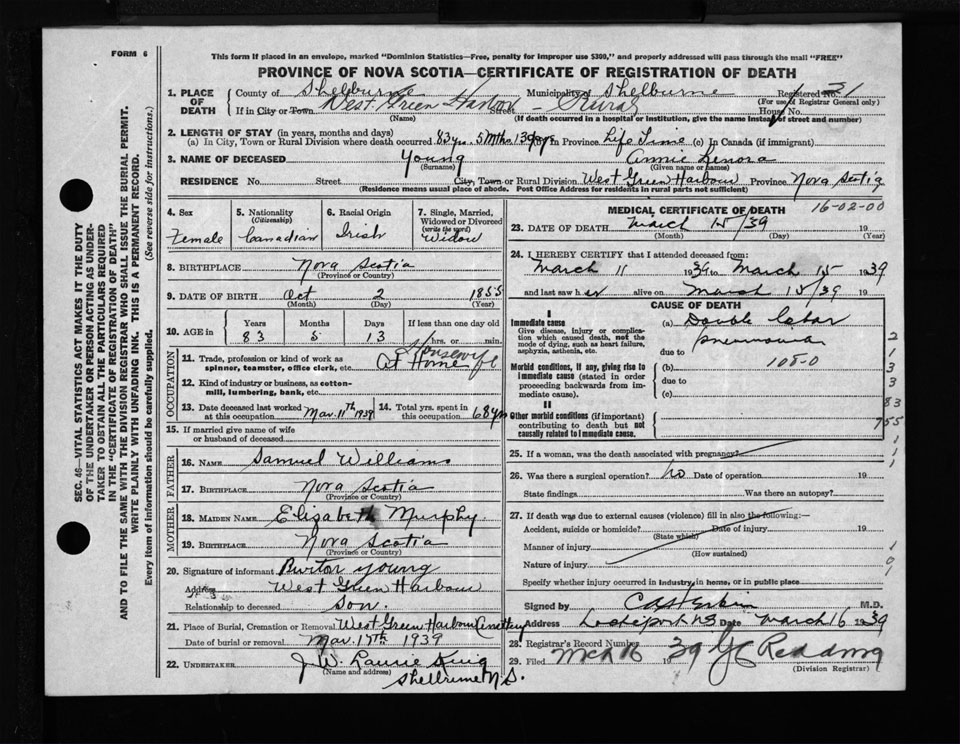 FORM 6
This form if placed in an envelope, marked "Dominion Statistics—Free, penalty for improper use $300," and properly addressed will pass through the mail "FREE"
PROVINCE OF NOVA SCOTIA—CERTIFICATE OF REGISTRATION OF DEATH
SEC. 46—VITAL STATISTICS ACT MAKES IT THE DUTY
OF THE UNDERTAKER OR PERSON ACTING AS UNDER-
TAKER TO OBTAIN ALL THE PARTICULARS REQUIRED
IN THE "CERTIFICATE OF REGISTRATION OF DEATH"
AND TO FILE THE SAME WITH THE DIVISION REGISTRAR WHO SHALL ISSUE THE BURIAL PERMIT.
WRITE PLAINLY WITH UNFADING INK. THIS IS A PERMANENT RECORD.
Every item of information should be carefully supplied. (See reverse side for instructions.)
1. PLACE OF DEATH County of Shelburne Municipality of Shelburne Registered No. 31
(For use of Registrar General only)
If in City or Town West Green Harbor — Rural Street House No.
(Name) (If death occurred in a hospital or institution, give the name instead of street and number)
2. LENGTH OF STAY (in years, months and days)
(a) In City, Town or Rural Division where death occurred 83 yrs. 5 Mths. 13 days (b) In Province Life Time (c) In Canada (if immigrant)
3. NAME OF DECEASED Young Annie Lenora
(Surname) (Given name or names)
RESIDENCE No. Street City, Town or Rural Division West Green Harbour Province Nova Scotia
(Residence means usual place of abode. Post Office Address for residents in rural parts not sufficient)
4. Sex Female
5. Nationality (Citizenship) Canadian
6. Racial Origin Irish
7. Single, Married, Widowed or Divorced (write the word) Widow
8. BIRTHPLACE Nova Scotia
(Province or Country)
9. DATE OF BIRTH Oct 2 1855
(Month) (Day) (Year)
10. AGE in Years 83 Months 5 Days 13 If less than one day old hrs. or min.
OCCUPATION
11. Trade, profession or kind of work as spinner, teamster, office clerk, etc. Housewife At Home
12. Kind of industry or business, as cotton-mill, lumbering, bank, etc.
13. Date deceased last worked at this occupation Mar. 11th 1939
14. Total yrs. spent in this occupation 68 yrs
15. If married give name of wife or husband of deceased
FATHER
16. NAME Samuel Williams
17. BIRTHPLACE Nova Scotia
(Province or Country)
MOTHER
18. MAIDEN NAME Elizabeth Murphy
19. BIRTHPLACE Nova Scotia
(Province or Country)
20. Signature of informant Burton Young
Address West Green Harbour
Relationship to deceased Son.
21. Place of Burial, Cremation or Removal West Green Harbour Cemetery
Date of burial or removal Mar. 17th 1939
22. UNDERTAKER J. W. Laurie King
(Name and address)
Shelburne N.S.
MEDICAL CERTIFICATE OF DEATH
16-02-00
23. DATE OF DEATH March 15/39 19
(Month) (Day) (Year)
24. I HEREBY CERTIFY that I attended deceased from:
March 11 1939 to March 15 1939
and last saw her alive on March 15/39 19
CAUSE OF DEATH
I
Immediate cause
Give disease, injury or complication which caused death, not the mode of dying, such as heart failure, asphyxia, asthenia, etc.
(a) Double Lobar pneumonia
due to
Morbid conditions, if any, giving rise to immediate cause (stated in order proceeding backwards from immediate cause)
(b) 108-0
due to
(c)
II
Other morbid conditions (if important) contributing to death but not causally related to immediate cause.
2
1
3
3
83
755
1
1
1
25. If a woman, was the death associated with pregnancy?
26. Was there a surgical operation? No Date of operation 19
State findings Was there an autopsy?
27. If death was due to external causes (violence) fill in also the following:—
Accident, suicide or homicide? Date of injury 19
(State which)
Manner of injury
(How sustained)
Nature of injury
1
0
Specify whether injury occurred in industry, in home, or in public place
Signed by M.D.
Address Lockeport N.S. Date March 16 1939
28. Registrar's Record Number
29. Filed Mch 16 1939 Redding
(Division Registrar)